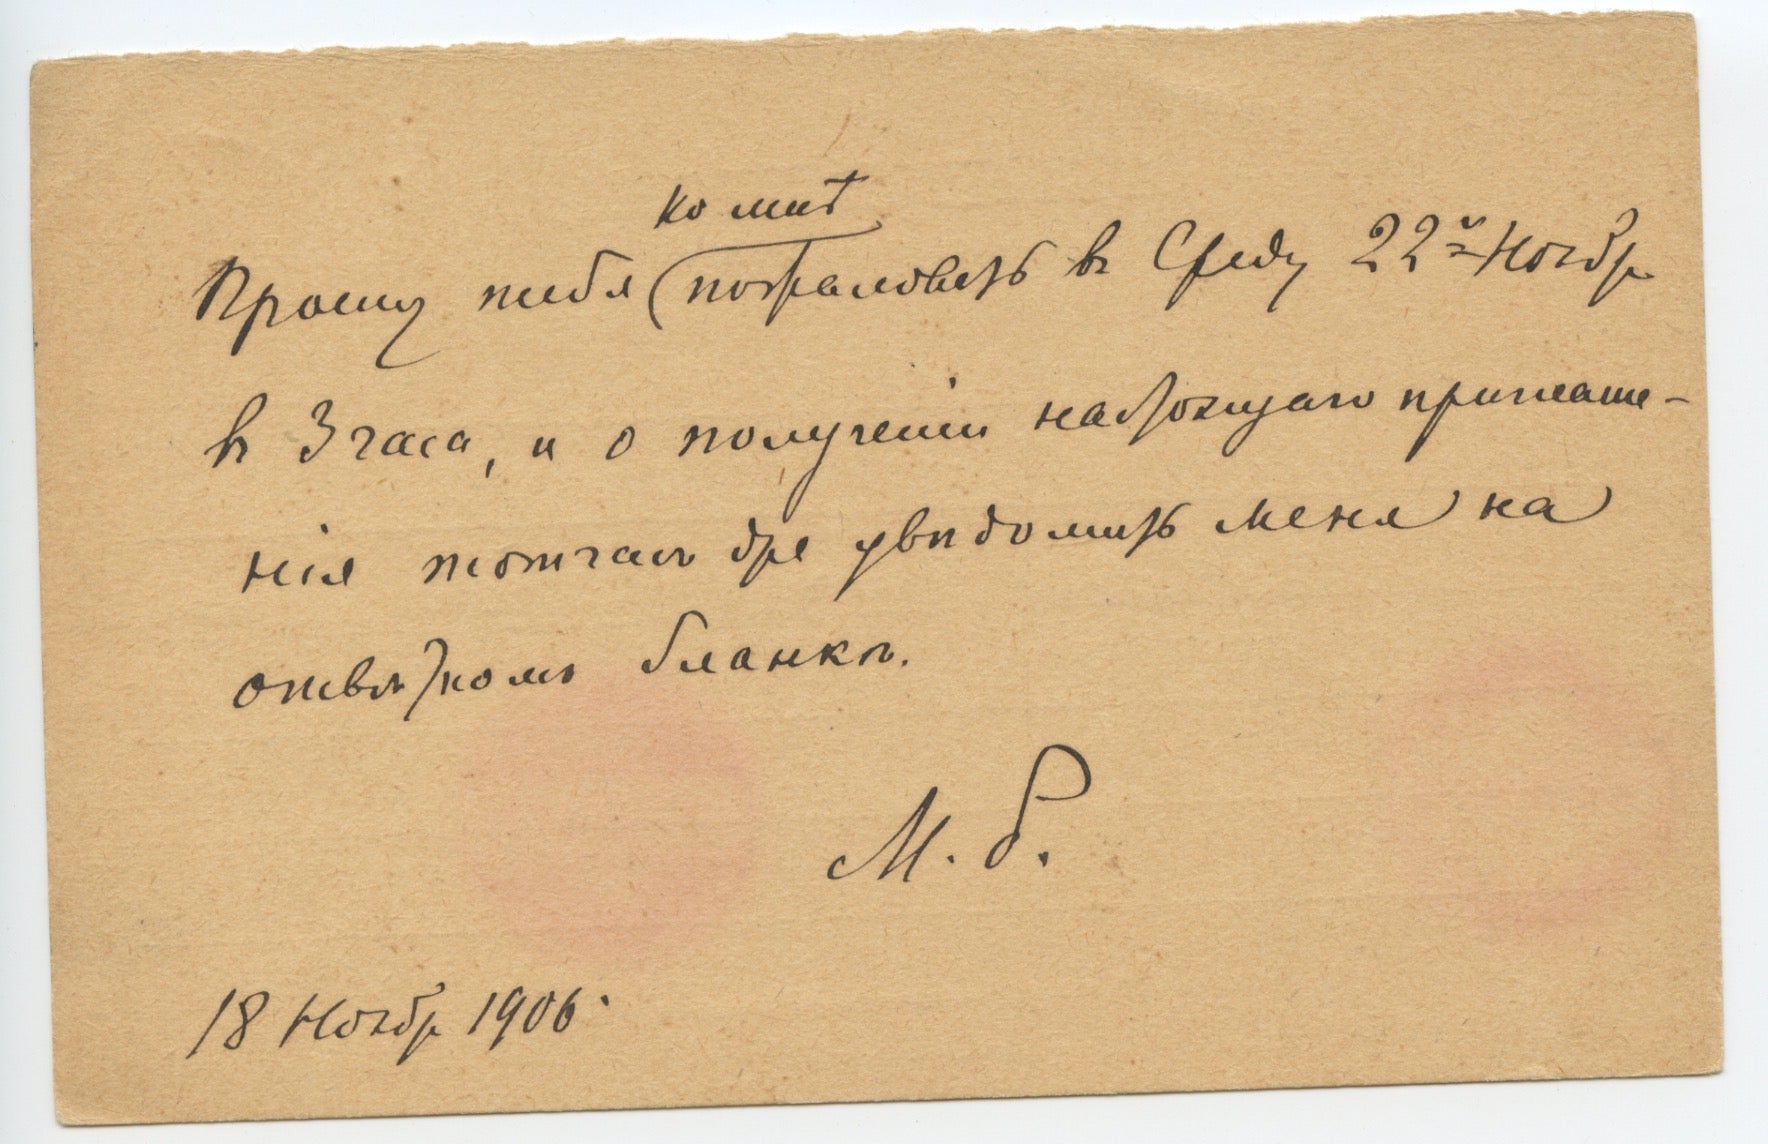 ко мнѣ
Прошу тебя пожаловать въ Среду 22го Ноябр
въ 3 часа, и о полученіи настоящаго приглаше-
нія тотчасъ же увѣдомить меня на
отвѣтномъ бланкѣ.
М. Б.
18 Ноябр 1906.